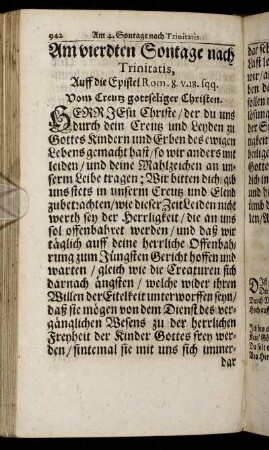 942 Am 4. Sontage nach Trinitatis.
Am vierdten Sontage nach
Trinitatis,
Auff die Epistel Rom. 8. v. 18. sqq.
Vom Creutz gottseliger Christen.
HERR JEsu Christe / der du uns
durch dein Creutz und Leyden zu
Gottes Kindern und Erben des ewigen
Lebens gemacht hast / so wir anders mit
leiden / und deine Mahlzeichen an un-
serm Leibe tragen; Wir bitten dich gib
uns stets in unserm Creutz und Elend
zubetrachten / wie dieser Zeit Leiden nicht
werth sey der Herrligkeit / die an uns
sol offenbahret werden / und daß wir
täglich auff deine herrliche Offenbah-
rung zum Jüngsten Gericht hoffen und
warten / gleich wie die Creaturen sich
darnach ängsten / welche wider ihren
Willen der Eitelkeit unterworffen seyn /
daß sie mögen von dem Dienst des ver-
gänglichen Wesens zu der herrlichen
Freyheit der Kinder Gottes frey wer-
den / sintemal sie mit uns sich immer-
dar